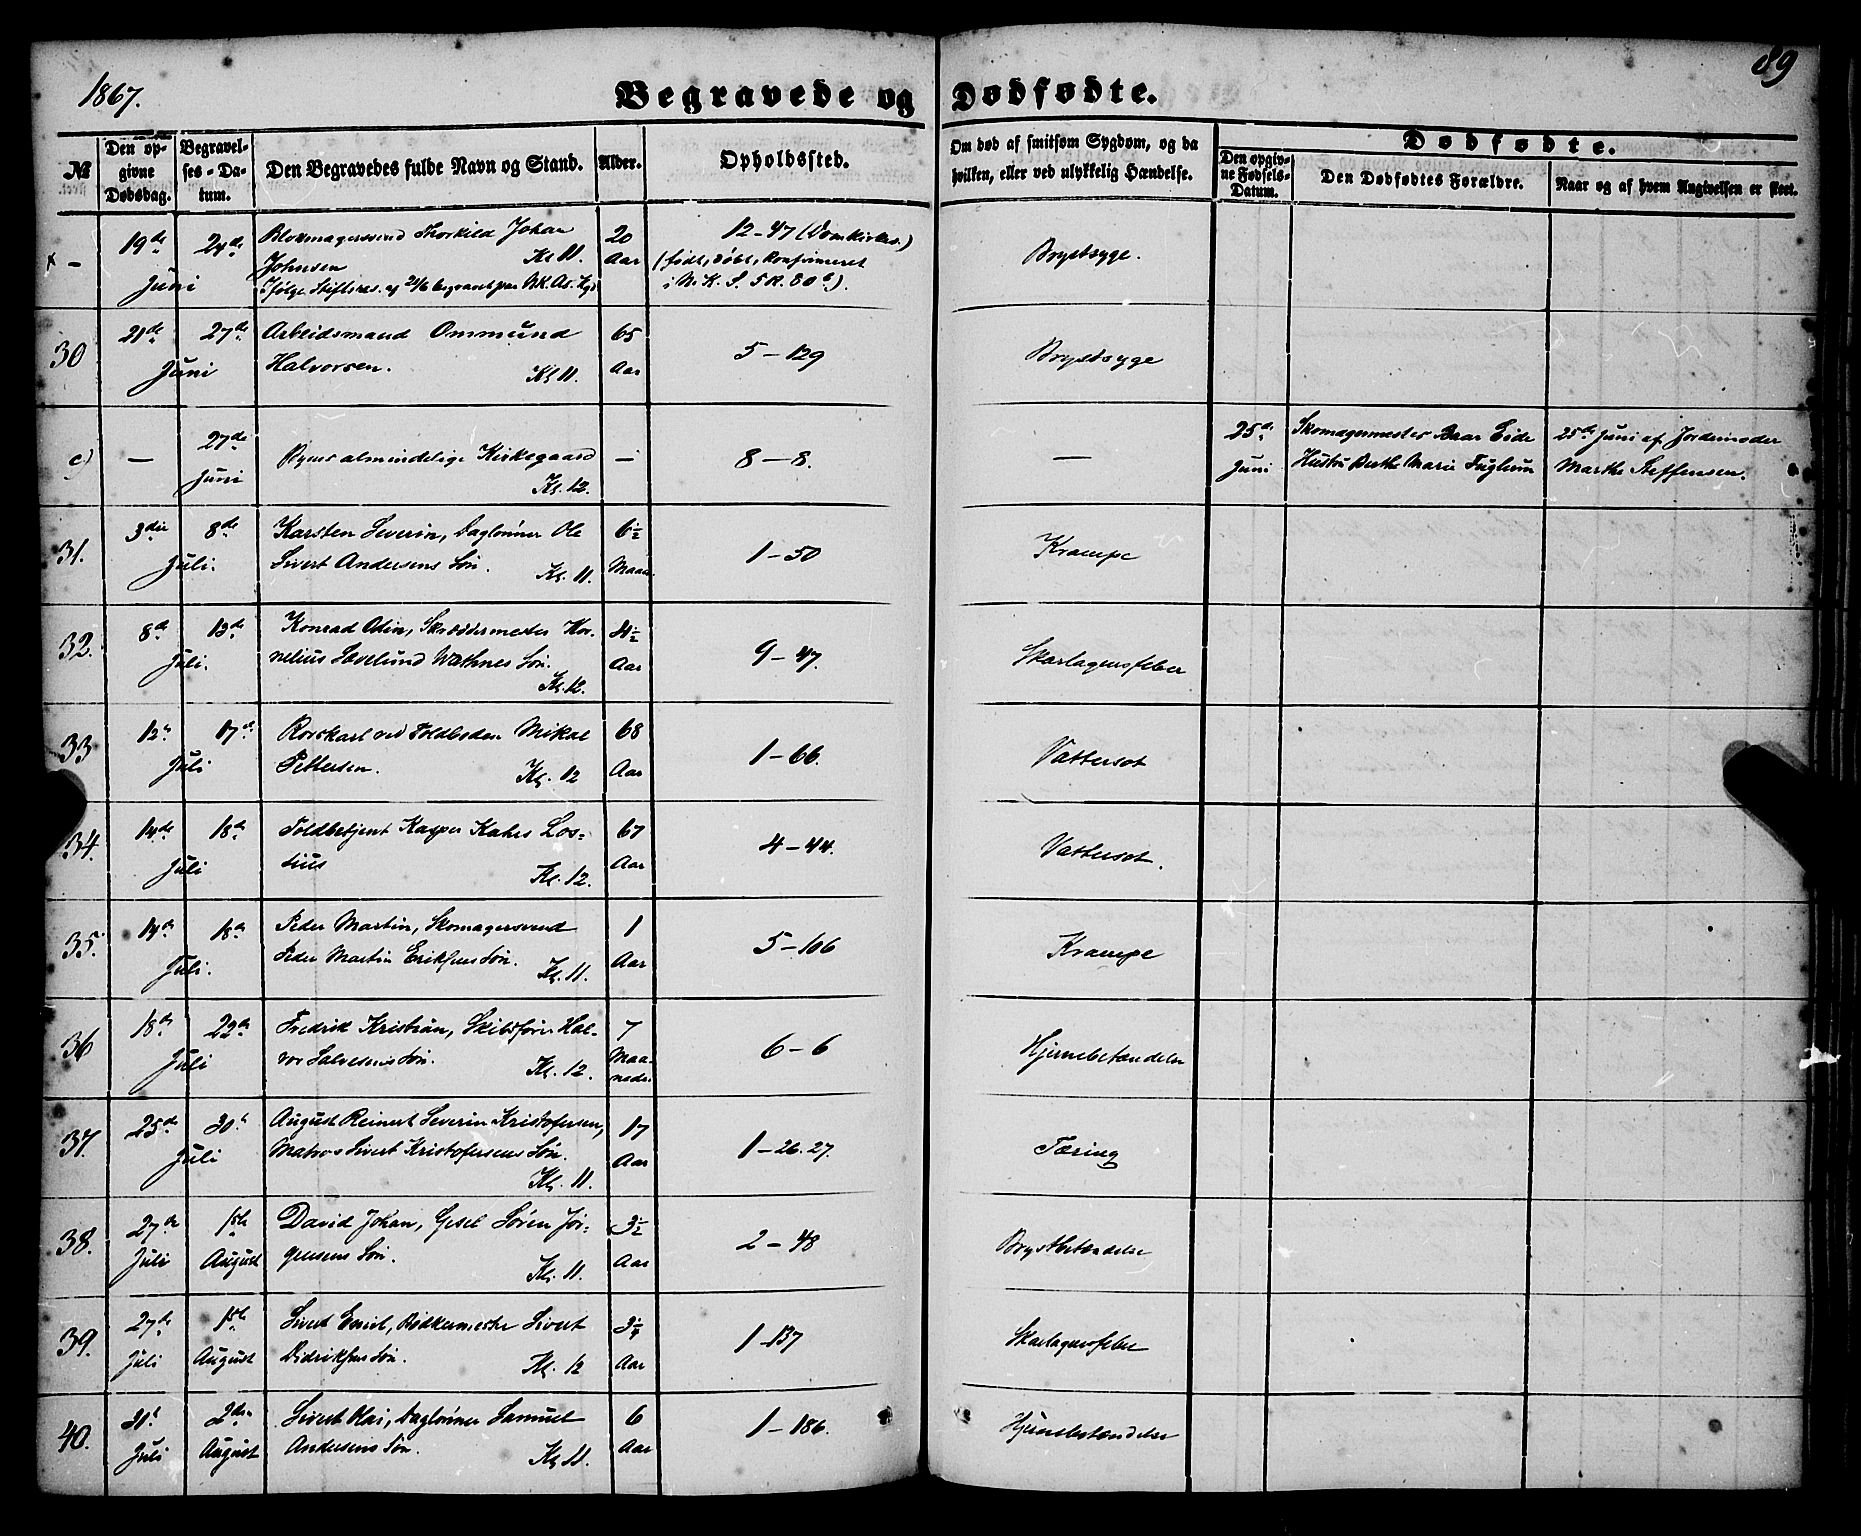 1867.
Begravede og Dødfødte.
89
№
Den op-
givne
Dødsdag.
Begravel-
ses-Da-
tum.
Den Begravedes fulde Navn og Stand.
Alder.
Opholdssted.
Om død af smitsom Sygdom, og da
hvilken, eller ved ulykkelig Hændelse.
Dødfødte.
Den opgiv-
ne Fødsels-
Datum.
Den Dødfødtes Forældre.
Naar og af hvem Angivelsen er skeet.
x – 19de 24de Blokmagersvend Thorkild Johan 20 12-47 (Domkirkes.) Brystsyge.
Juni Johnsen Kl 11. Aar (født, døbt, konfirmeret
Ifølge Stiftsres. af 22/6 begravet paa i N. K. S. 5 R. 80 6).
30 21de 27de Arbeidsmand Ommund 65 5-129 Brystsyge
Juni Halvorsen. Kl 11. Aar
c) — 27de Byens almindelige Kirkegaard — 8-8. — 25de Skomagermester Braar Eide 25de Juni af Jordemoder
Juni Kl. 12. Juni Hustru Berthe Marie Fuglum Marthe Steffensen.
31. 3die 8de Karsten Severin, Dagløнner Ole 6½ 1-50 Krampe
Juli. Sivert Andersens Søn. Kl. 11. Maan.
32. 8de 13de Konrad Odin, Skræddermester Kor- 4½ 9-47. Skarlagensfeber
Juli. nelius Hævelund Wathnes Søn. Aar
Kl. 12.
33 12te 17de Rorskarl ved Toldboden Mikal 68 1-66. Vattersot
Juli Pettersen. Kl. 12 Aar
34. 14de 18de Toldbetjent Kasper Kahrs Los- 67 4-44. Vattersot.
Juli sius Kl. 12. Aar
35. 14de 18de Peder Martin, Skomagersvend 1 5-106 Krampe
Juli. Peder Martin Eriksens Søn. Kl. 11. Aar
36 18de 22de Fredrik Kristian, Skibsfører Hal- 7 6-6 Hjernebetændelse
Juli vor Salvesens Søn. Kl. 12. Maa-
neder
37. 25de 30te August Reinert Severin Kristofersen, 17 1-26.27. Tæring
Juli Matros Sivert Kristofersens Søn. Aar
Kl. 11.
38. 27de 1ste David Johan, Gesel Søren Jør- 3½ 2-48 Brystbetændelse
Juli August gensens Søn. Kl. 11. Aar
39. 27de 1ste Sivert Emil, Bødkermester Sivert 3¼ 1-137 Skarlagensfeber
Juli August Didriksens Søn. Kl. 12 Aar
40. 31te 2den Sivert Kai, Dagløнner Samuel 6 1-186. Hjernebetændelse
Juli August Andersens Søn. Kl 11. Aar